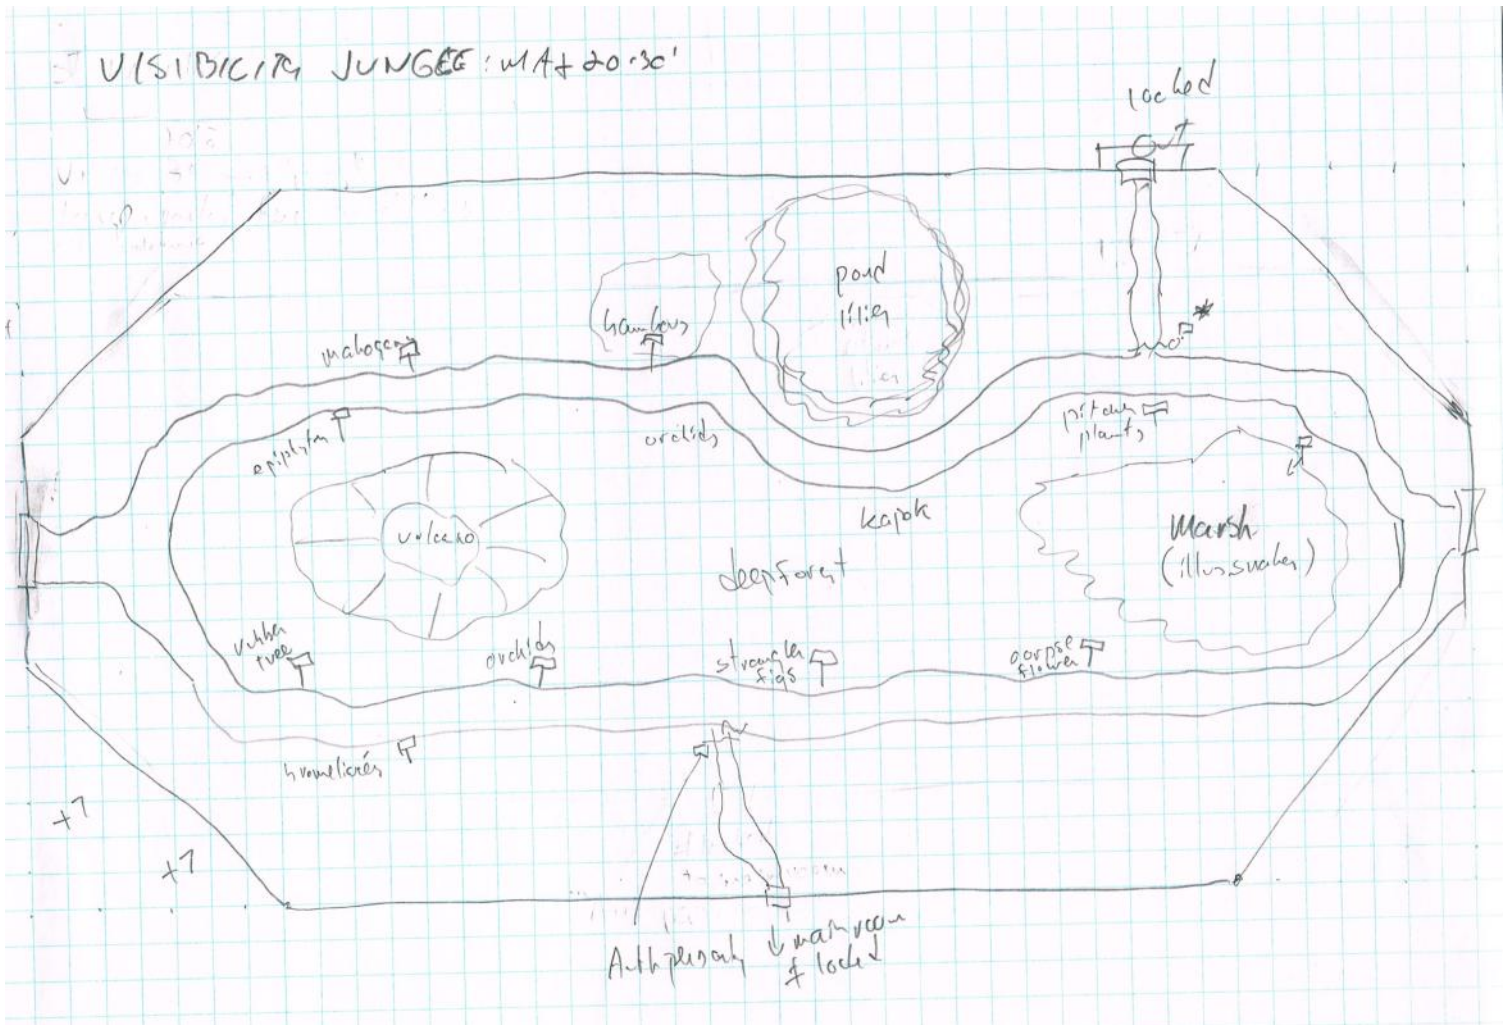 VISIBILITY JUNGLE: MAX 20-30'
locked
pond
lilies
bambous
mahogany
epiphytes
orchids
pitcher
plants
kapok
volcano
deep forest
Marsh
(illus. snakes)
rubber
tree
orchids
strangler
figs
corpse
flower
bromeliads
+7
+7
↓ main room
locked